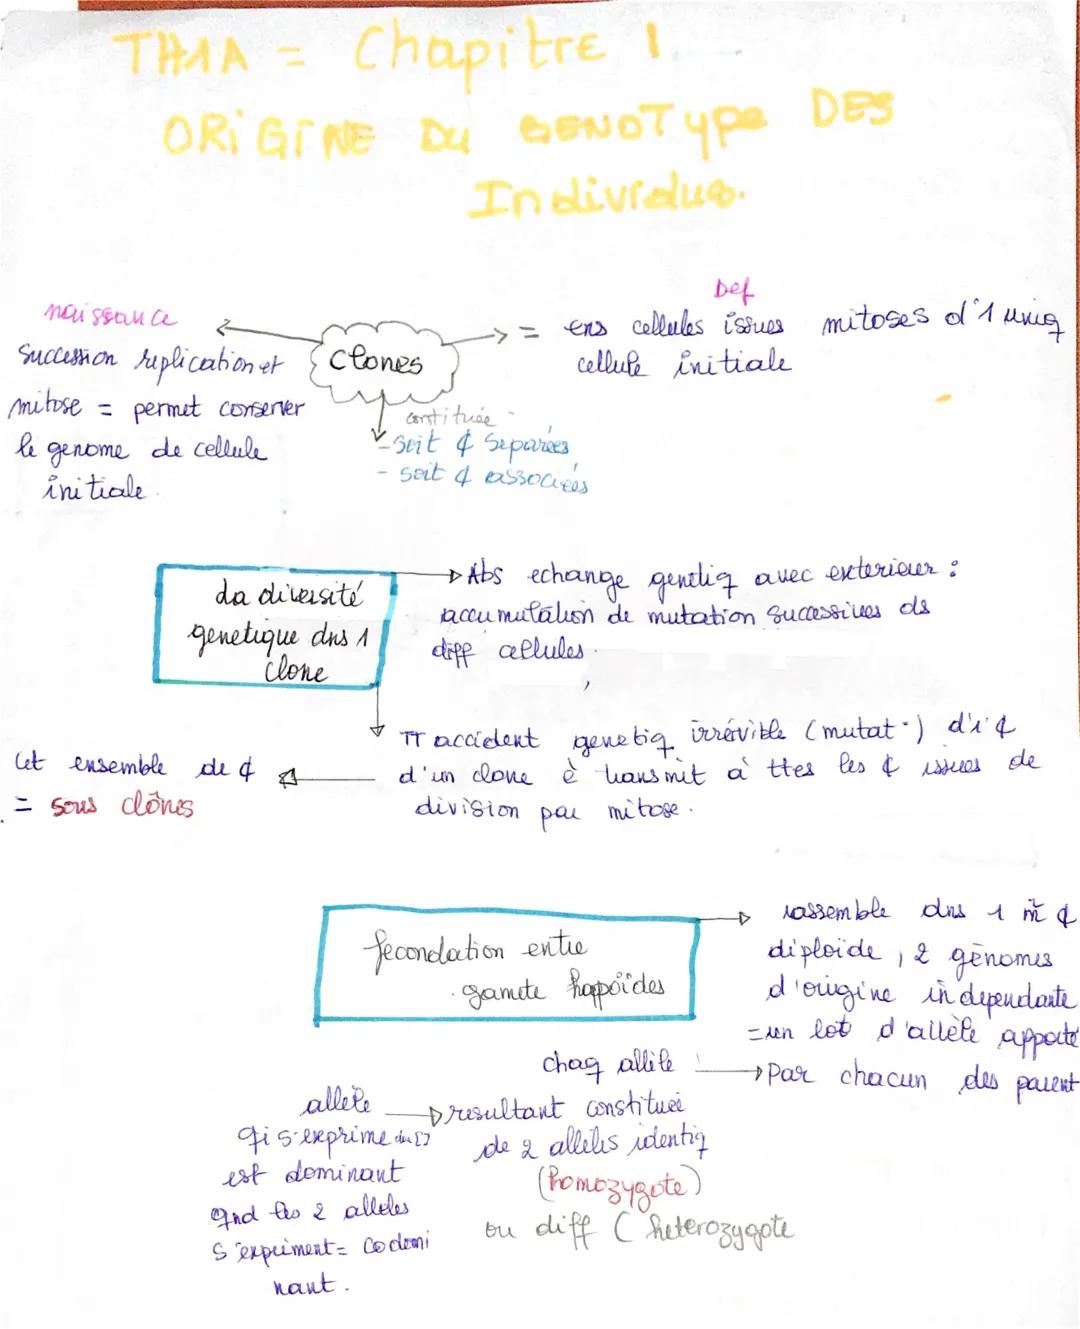 TH1A = Chapitre 1
ORiGINE Du GENOType DES
Individus.
naissance
Succession replication et
mitose = permet conserver
le genome de cellule
initiale.
Clones
Def
= ens cellules issues mitoses d'1 uniq
cellule initiale
constituée
- Soit ¢ séparées
- soit ¢ associées
La diversité
genetique dns 1
Clone
Abs echange genetiq avec exterieur :
accumulation de mutation successives ds
diff cellules.
TT accident genetiq irrévible (mutat°) d'1 ¢
d'un clone è transmit à ttes les ¢ issues de
division par mitose.
Cet ensemble de ¢
= sous clônes
fecondation entre
gamete haploïdes
rassemble dns 1 m̂ ¢
diploïde, 2 génomes
d'origine independante
= un lot d'allèle apporté
par chacun des parent
chaq allèle
resultant constituée
de 2 allèles identiq
(homozygote)
ou diff (heterozygote
allele
qi s'exprime
est dominant
qnd les 2 alleles
s'expriment = codomi
nant.